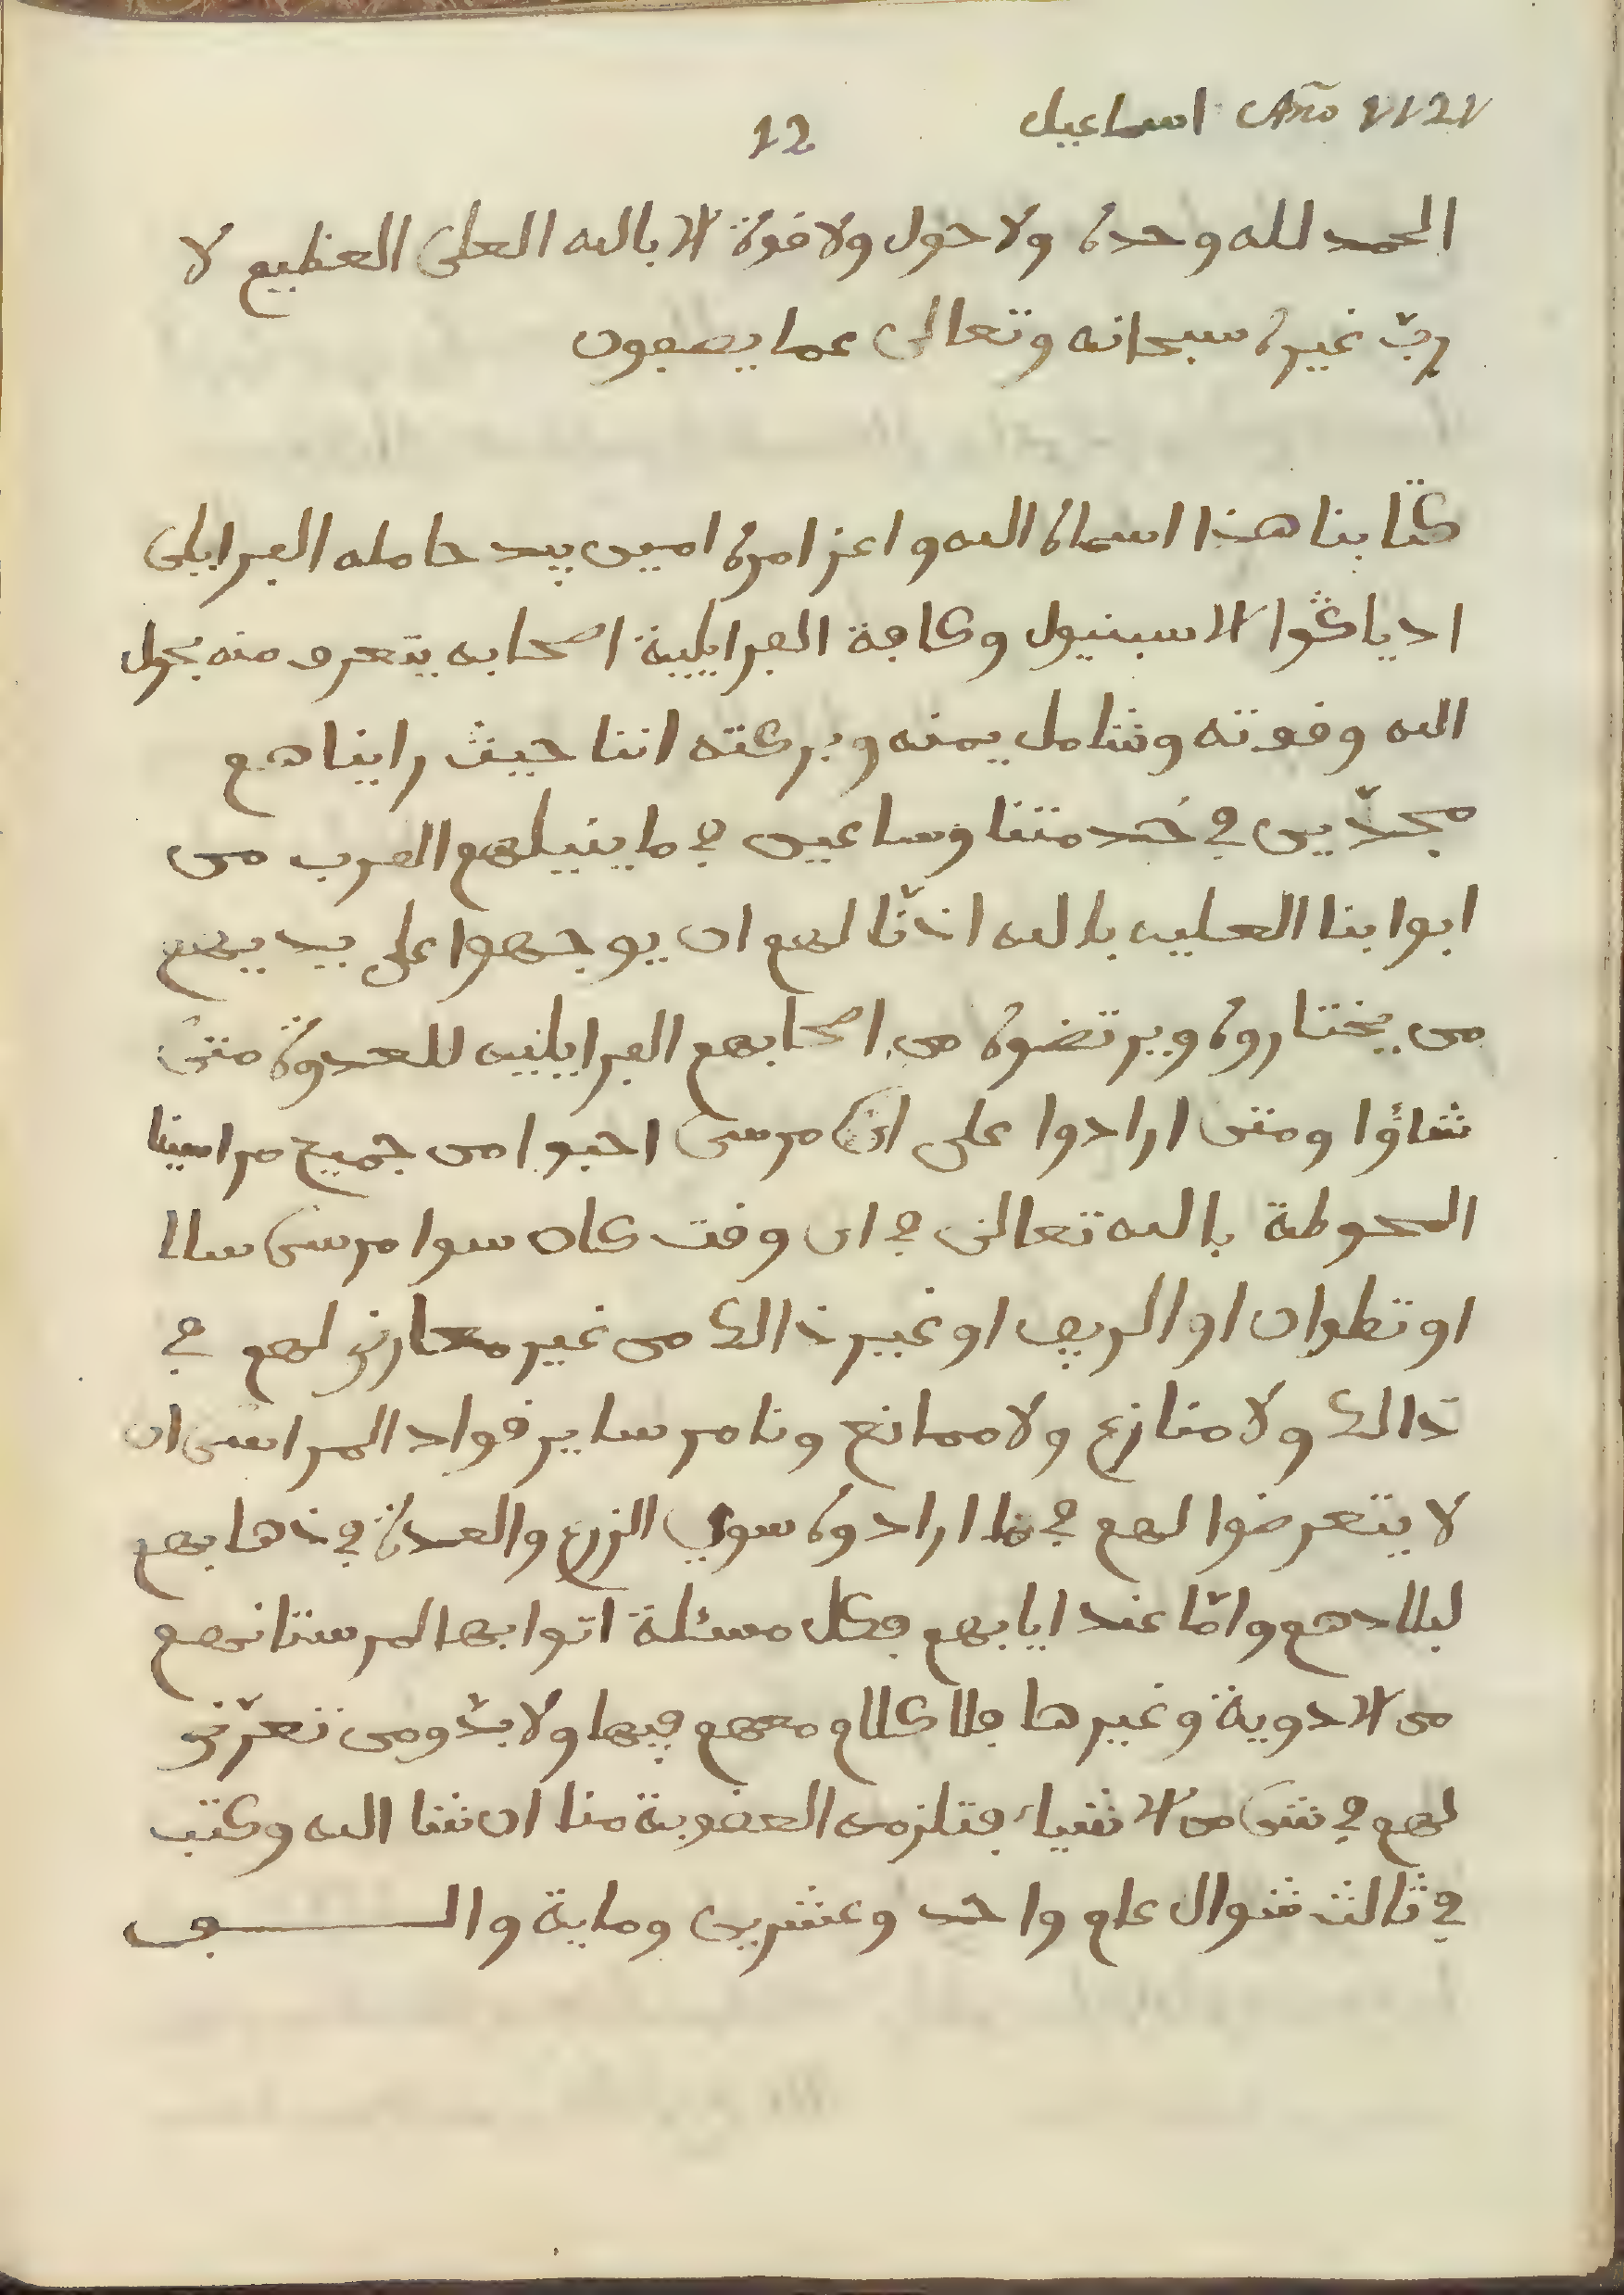 اسماعيل Año 1121
12
الحمد لله وحده ولا حول ولا قوة الا بالله العلى العظيم لا
ربّ غيره سبحانه وتعالى عما يصفون
كتابنا هذا اسماه الله واعز امره امين بيد حامله الفرايلى
ادياڭوا الاسبنيول وكافة الفرايلية اصحابه يتعرف منه بحول
الله وقوته وشامل يمنه وبركته اننا حيث رايناهم
مجدّين في خدمتنا وساعين في ما ينيلهم القرب من
ابوابنا العليه بالله اذنّا لهم ان يوجهوا على يديهم
من يختاروه ويرتضوه من اصحابهم الفرايلية للعدوة متى
شاؤا ومتى ارادوا على اي مرسى احبوا من جميع مراسينا
المحوطة بالله تعالى في اى وقت كان سوا مرسى سلا
او تطوان او الريف او غير ذالك من غير معارض لهم في
ذالك ولا منازع ولا ممانع ونامر ساير قواد المراسى ان
لا يتعرضوا لهم في ما ارادوه سوى الزرع والعدة في ذهابهم
لبلادهم وامّا عند ايابهم فكل مسئلة اتوا بها لمرستانهم
من الادوية وغيرها فلا كلام معهم فيها ولا بدّ ومن تعرّض
لهم في شىء من الاشياء فتلزمه العقوبة منا ان شا الله وكتب
في ثالث شوال عام واحد وعشرين وماية والف